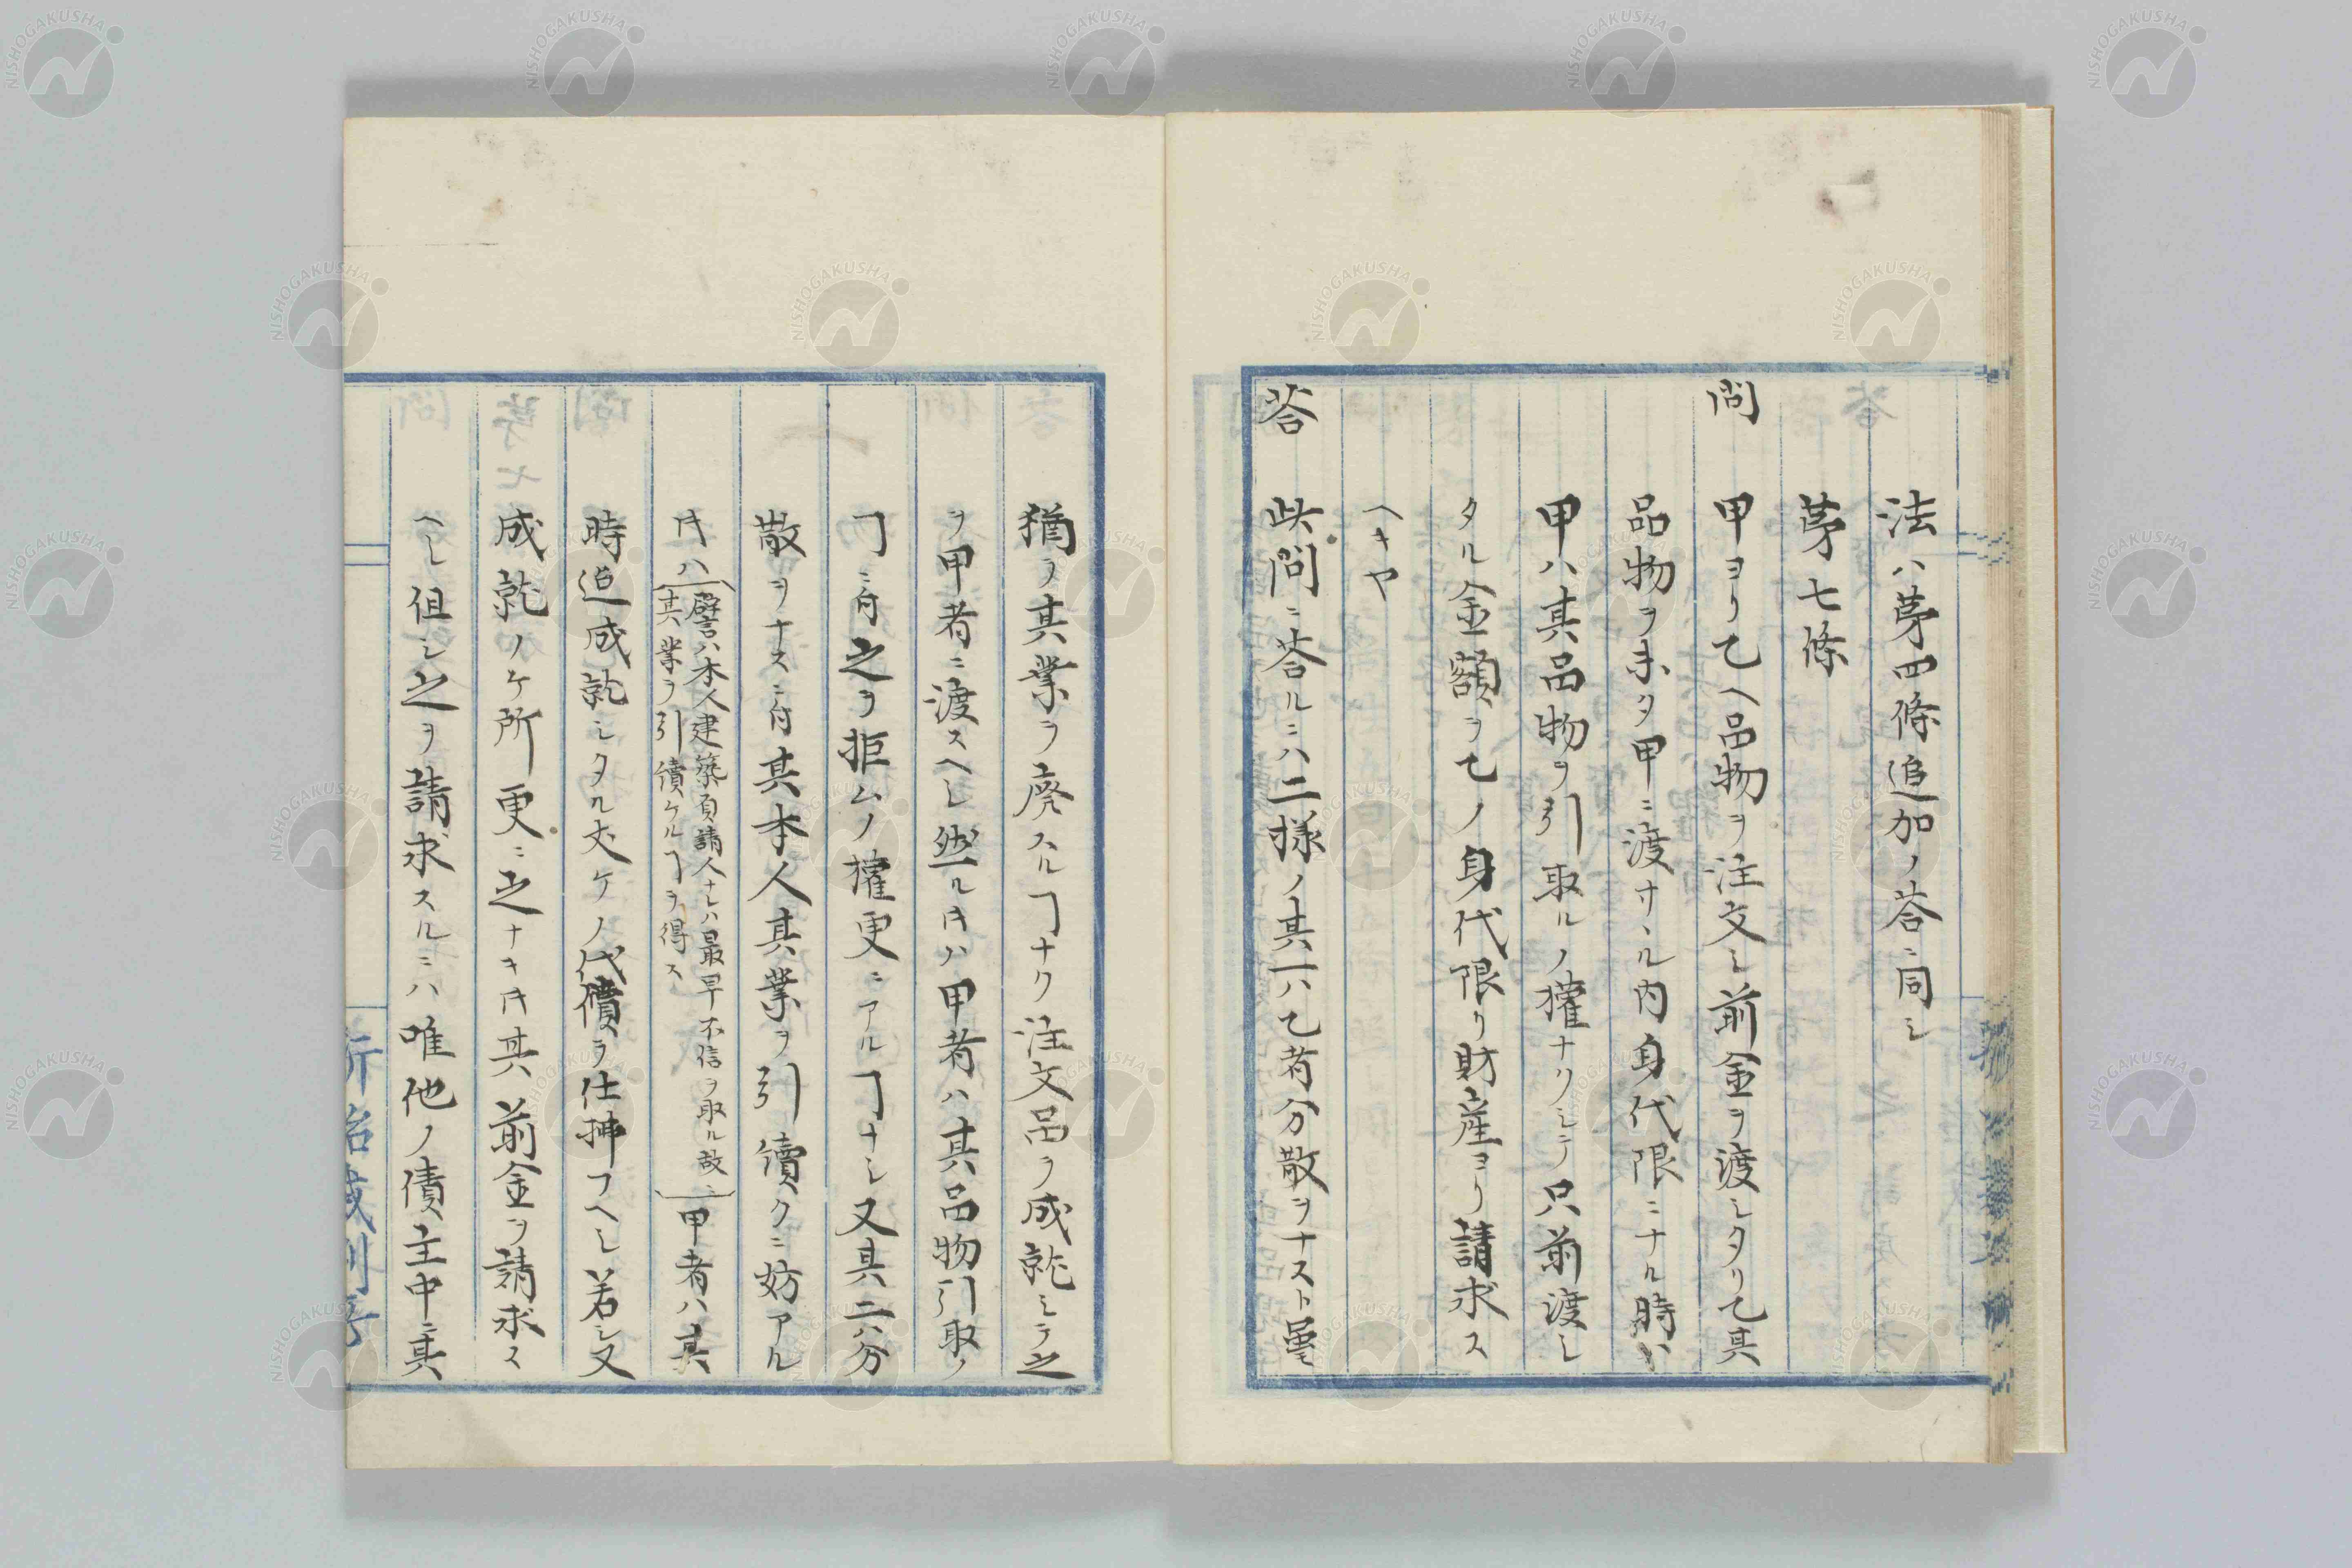 法ハ第四條追加ノ答ニ同シ
第七條
問 甲ヨリ乙ヘ品物ヲ注文シ前金ヲ渡シタリ乙其
品物ヲ未タ甲ニ渡サヽル内身代限ニナル時ハ
甲ハ其品物ヲ引取ルノ權ナクシテ只前渡シ
タル金額ヲ乙ノ身代限リ財産ヨリ請求ス
ヘキヤ
答 此問ニ答ルニハ二樣ノ其一ハ乙者分散ヲナスト雖
猶ヲ其業ヲ廃スルヿナク注文品ヲ成就シテ之
ヲ甲者ニ渡スヘシ然ルㇳキハ甲者ハ其品物引取ノ
ヿニ付之ヲ拒ムノ權更ニアルヿナシ又其二ハ分
散ヲナスニ付其本人其業ヲ引續クニ妨アル
𪜈ハ(譬ハ本人建築負請人ナレハ最早不信ヲ取ル故ニ
其業ヲ引續ケルヿヲ得ス)甲者ハ其
時迨成就シタル丈ケノ代償ヲ仕拂フヘシ若シ又
成就ノケ所更ニ之ナキ𪜈其前金ヲ請求ス
ヘシ但シ之ヲ請求スルニハ唯他ノ債主中ニ其
NISHOGAKUSHA